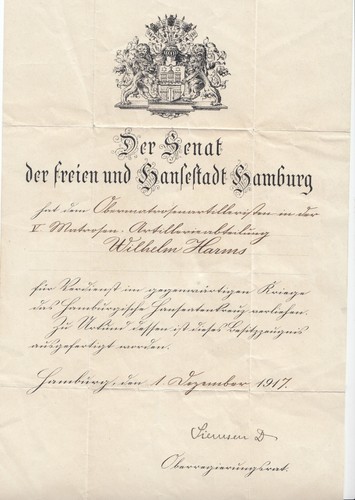 Der Senat
der freien und Hansestadt Hamburg
hat dem Obermatrosenartilleristen in der
V. Matrosen-Artillerieabteilung
Wilhelm Harms
für Verdienst im gegenwärtigen Kriege
das Hamburgische Hanseatenkreuz verliehen.
Zu Urkund dessen ist dieses Besitzzeugnis
ausgefertigt worden.
Hamburg, den 1. Dezember 1917.
Oberregierungsrat.